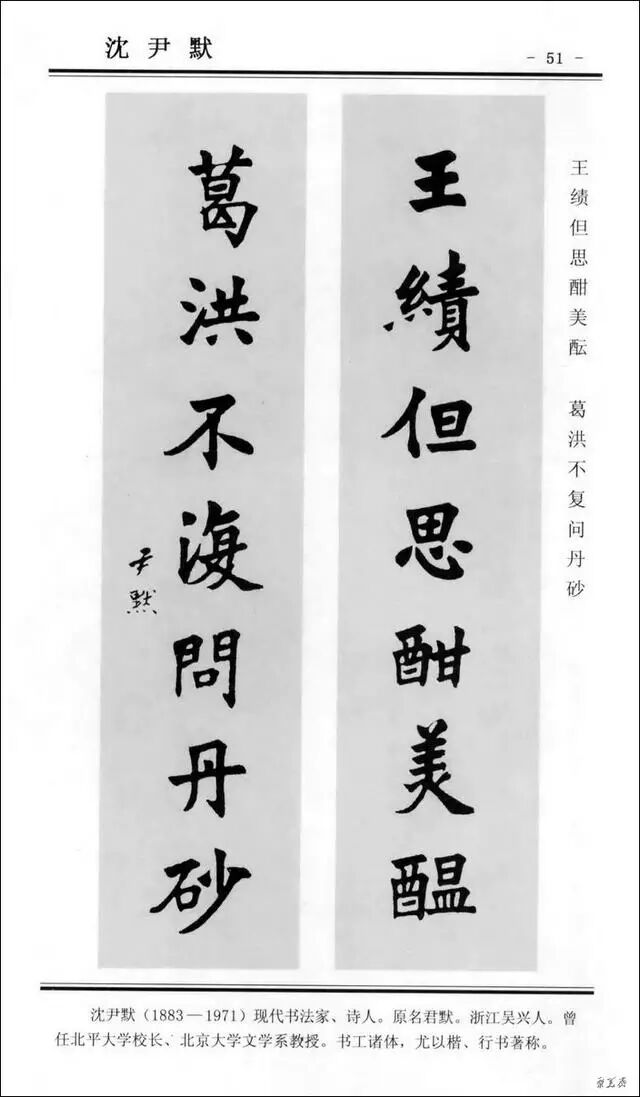 沈尹默
- 51 -
王绩但思酣美酝 葛洪不复问丹砂
王績但思酣美醖
葛洪不復問丹砂
尹默
沈尹默（1883—1971）现代书法家、诗人。原名君默。浙江吴兴人。曾
任北平大学校长、北京大学文学系教授。书工诸体，尤以楷、行书著称。